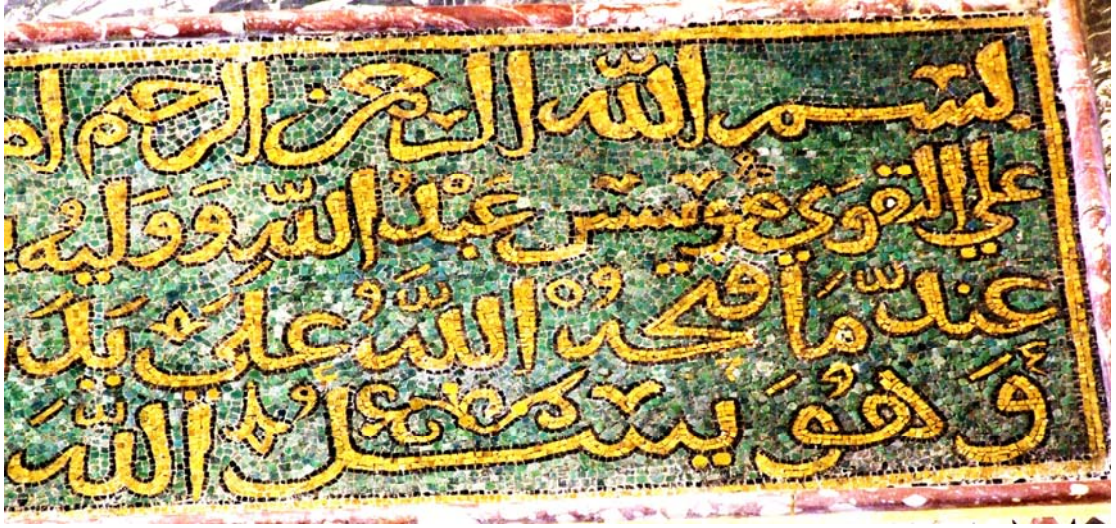 بسم الله الرحمن الرحيم
على التقوى مؤسس عَبْدُ اللّه وَوَليه
عندمَا فتحهُ اللّهُ عَلى يَد
وَهُوَ يسئلُ اللّهَ